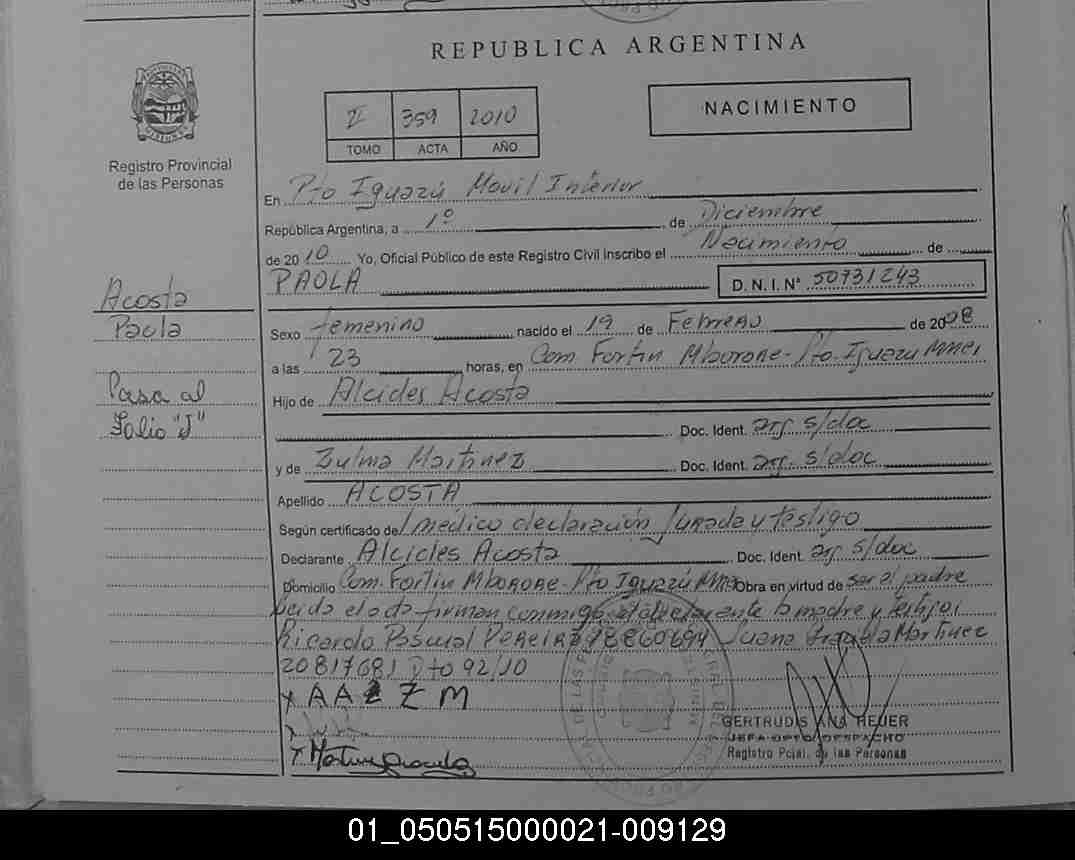 REPUBLICA ARGENTINA
359 2010
TOMO ACTA AÑO
NACIMIENTO
Registro Provincial
de las Personas
En Pto Iguazú Movil Interior
República Argentina, a 1º de Diciembre
de 2010 Yo, Oficial Público de este Registro Civil Inscribo el Nacimiento de
PAOLA D.N.I. Nº 50731243
Acosta
Paola
Pasa al
Folio "J"
Sexo femenino nacido el 19 de Febrero de 2008
a las 23 horas, en Com. Fortin Mborore - Pto. Iguazu Mnes
Hijo de Alcides Acosta
Doc. Ident. arg s/doc
y de Zulma Martinez Doc. Ident. arg. s/doc
Apellido ACOSTA
Según certificado de/ medico declaración Jurada y testigo
Declarante Alcides Acosta Doc. Ident. arg s/doc
Domicilio Com. Fortin Mborore - Pto Iguazú Mnes Obra en virtud de ser el padre
firman conmigo la madre y testigos
Ricardo Pascual Juana Martinez
20817681 Dto 92/10
x AA Z Z M
GERTRUDIS ANA HEUER
JEFA DPTO DESPACHO
Registro Pcial. de las Personas
01_050515000021-009129